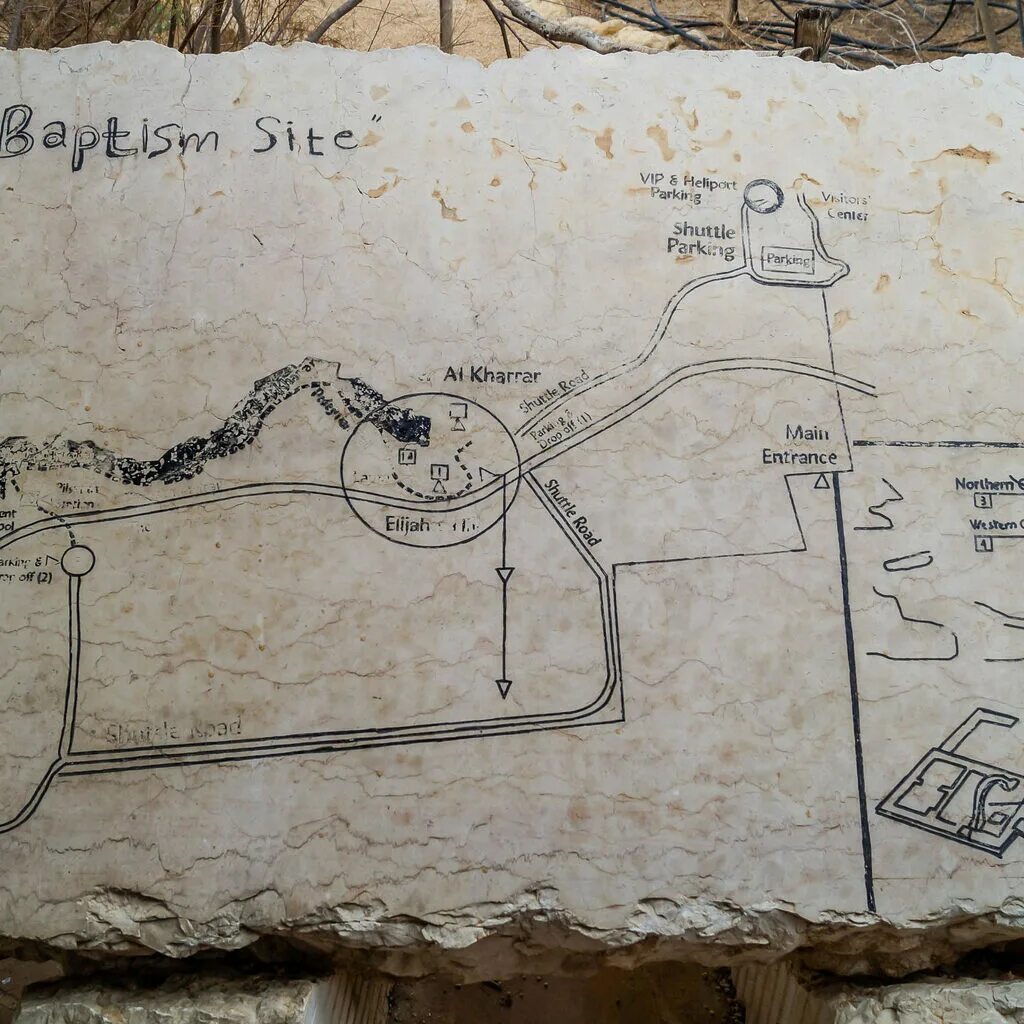 Baptism Site"
VIP & Heliport
Parking
Visitors'
Center
Shuttle
Parking
Parking
Al Kharrar
Shuttle Road
Parking &
Drop off (1)
Main
Entrance
14
1
Elijah
Shuttle Road
Northern
3
Western
4
Parking &
Drop off (2)
Shuttle Road